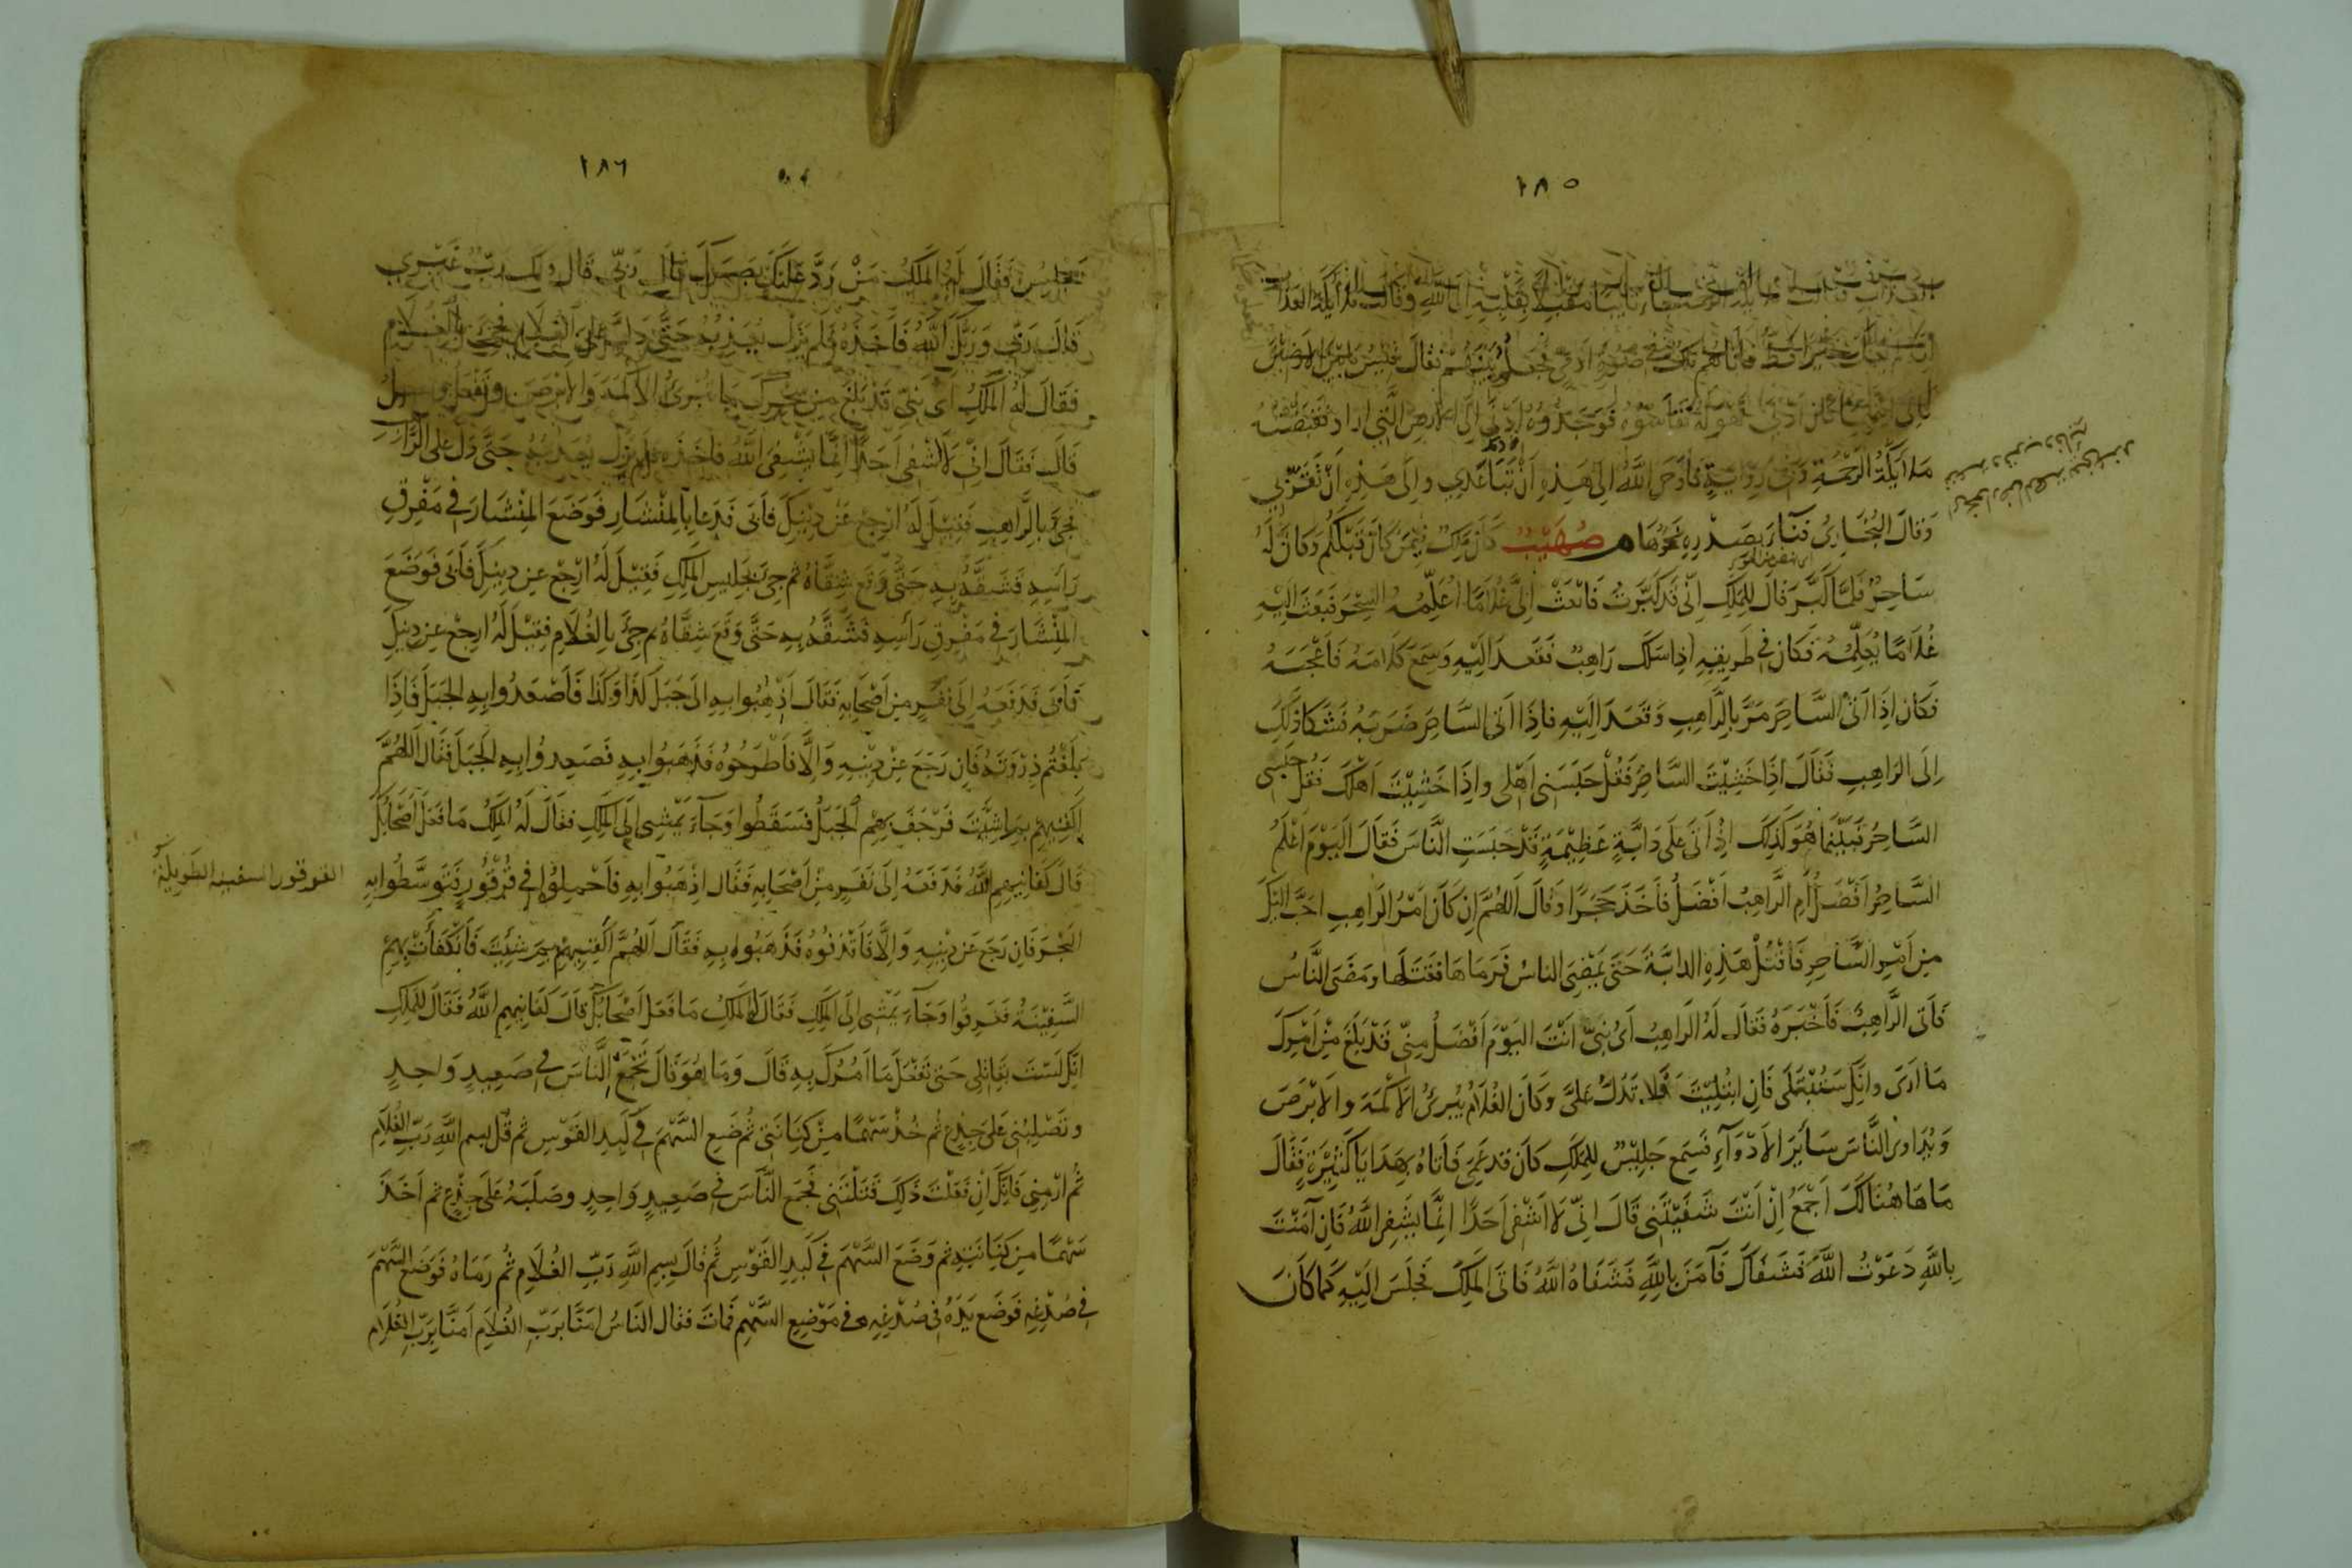 ١٨٥
مقبلا بقلبه الى الله وقالت ملائكة العذاب
خيرا قط فاتاهم ملك فى صورة ادمى فجعلوه بينهم فقال قيسوا ما بين الارضين
فالى ايتهما كان ادنى فهو له فقاسوه فوجدوه ادنى الى الارض التى اراد فقبضته
ملائكة الرحمة وفى رواية فاوحى الله الى هذه ان تباعدى والى هذه ان تقربى
وقال البخارى فناء بصدره نحوها م صهيب كان ملك فيمن كان قبلكم وكان له
ساحر فلما كبر قال للملك انى قد كبرت فابعث الى غلاما اعلمه السحر فبعث اليه
غلاما يعلمه فكان فى طريقه اذا سلك راهب فقعد اليه وسمع كلامه فاعجبه
فكان اذا اتى الساحر مر بالراهب وقعد اليه فاذا اتى الساحر ضربه فشكا ذلك
الى الراهب فقال اذا خشيت الساحر فقل حبسنى اهلى واذا خشيت اهلك فقل حبسنى
الساحر فبينما هو كذلك اذ اتى على دابة عظيمة قد حبست الناس فقال اليوم اعلم
الساحر افضل ام الراهب افضل فاخذ حجرا وقال اللهم ان كان امر الراهب احب اليك
من امر الساحر فاقتل هذه الدابة حتى يمضى الناس فرماها فقتلها ومضى الناس
فاتى الراهب فاخبره فقال له الراهب اى بنى انت اليوم افضل منى قد بلغ من امرك
ما ارى وانك ستبتلى فان ابتليت فلا تدل على وكان الغلام يبرئ الاكمه والابرص
ويداوى الناس سائر الادواء فسمع جليس للملك كان قد عمى فاتاه بهدايا كثيرة فقال
ما هاهنا لك اجمع ان انت شفيتنى قال انى لا اشفى احدا انما يشفى الله فان امنت
بالله دعوت الله فشفاك فآمن بالله فشفاه الله فاتى الملك فجلس اليه كما كان
١٨٦
يجلس فقال له الملك من رد عليك بصرك قال ربى قال ولك رب غيرى
قال ربى وربك الله فاخذه فلم يزل يعذبه حتى دله على الغلام فجئ بالغلام
فقال له الملك اى بنى قد بلغ من سحرك ما تبرئ الاكمه والابرص وتفعل
قال فقال انى لا اشفى احدا انما يشفى الله فاخذه فلم يزل يعذبه حتى دل على الراهب
فجئ بالراهب فقيل له ارجع عن دينك فابى فدعا بالمنشار فوضع المنشار فى مفرق
رأسه فشقه به حتى وقع شقاه ثم جئ بجليس الملك فقيل له ارجع عن دينك فابى فوضع
المنشار فى مفرق رأسه فشقه به حتى وقع شقاه ثم جئ بالغلام فقيل له ارجع عن دينك
فابى فدفعه الى نفر من اصحابه فقال اذهبوا به الى جبل كذا وكذا فاصعدوا به الجبل فاذا
بلغتم ذروته فان رجع عن دينه والا فاطرحوه فذهبوا به فصعدوا به الجبل فقال اللهم
اكفنيهم بما شئت فرجف بهم الجبل فسقطوا وجاء يمشى الى الملك فقال له الملك ما فعل اصحابك
قال كفانيهم الله فدفعه الى نفر من اصحابه فقال اذهبوا به فاحملوه فى قرقور فتوسطوا به
القرقور السفينة الطويلة
البحر فان رجع عن دينه والا فاقذفوه فذهبوا به فقال اللهم اكفنيهم بما شئت فانكفأت بهم
السفينة فغرقوا وجاء يمشى الى الملك فقال له الملك ما فعل اصحابك قال كفانيهم الله فقال للملك
انك لست بقاتلى حتى تفعل ما آمرك به قال وما هو قال تجمع الناس فى صعيد واحد
وتصلبنى على جذع ثم خذ سهما من كنانتى ثم ضع السهم فى كبد القوس ثم قل بسم الله رب الغلام
ثم ارمنى فانك ان فعلت ذلك قتلتنى فجمع الناس فى صعيد واحد وصلبه على جذع ثم اخذ
سهما من كنانته ثم وضع السهم فى كبد القوس ثم قال بسم الله رب الغلام ثم رماه فوضع السهم
فى صدغه فوضع يده فى صدغه فى موضع السهم فمات فقال الناس امنا برب الغلام امنا برب الغلام